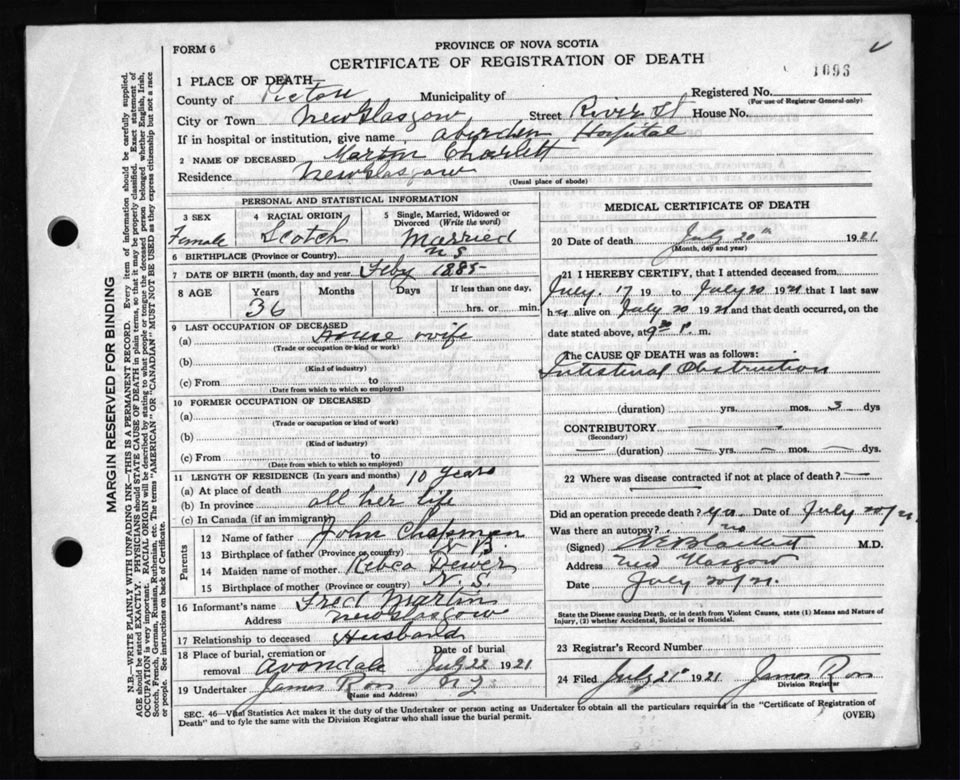 FORM 6
PROVINCE OF NOVA SCOTIA
CERTIFICATE OF REGISTRATION OF DEATH
1093
1 PLACE OF DEATH
County of Pictou Municipality of Registered No.
(For use of Registrar General only)
City or Town New Glasgow Street River St House No.
If in hospital or institution, give name Aberdeen Hospital
2 NAME OF DECEASED Martin Charlett
Residence New Glasgow
(Usual place of abode)
PERSONAL AND STATISTICAL INFORMATION
3 SEX
Female
4 RACIAL ORIGIN
Scotch
5 Single, Married, Widowed or Divorced (Write the word)
Married
6 BIRTHPLACE (Province or Country) N S
7 DATE OF BIRTH (month, day and year) Feby 1885
8 AGE Years Months Days If less than one day,
36 hrs. or min.
9 LAST OCCUPATION OF DECEASED
(a) House wife
(Trade or occupation or kind or work)
(b)
(Kind of industry)
(c) From to
(Date from which to which so employed)
10 FORMER OCCUPATION OF DECEASED
(a)
(Trade or occupation or kind of work)
(b)
(Kind of industry)
(c) From to
(Date from which to which so employed)
11 LENGTH OF RESIDENCE (In years and months)
(a) At place of death 10 years
(b) In province all her life
(c) In Canada (if an immigrant)
Parents
12 Name of father John Chapman
13 Birthplace of father (Province or country) N B
14 Maiden name of mother Rebca Dewer
15 Birthplace of mother (Province or country) N. S.
16 Informant's name Fred Martin
Address New Glasgow
17 Relationship to deceased Husband
18 Place of burial, cremation or removal Avondale
Date of burial July 22 1921
19 Undertaker James Ross N G
(Name and Address)
MEDICAL CERTIFICATE OF DEATH
20 Date of death July 20th 1921.
(Month, day and year)
21 I HEREBY CERTIFY, that I attended deceased from
July. 17 19 to July 20 1921 that I last saw
her alive on July 20 1921 and that death occurred, on the
date stated above, at 9 30 P. m.
The CAUSE OF DEATH was as follows:
Intestinal Obstruction
(duration) yrs. mos. 3 dys
CONTRIBUTORY
(Secondary)
(duration) yrs. mos. dys
22 Where was disease contracted if not at place of death?
Did an operation precede death? Yes. Date of July 20/21.
Was there an autopsy? no
(Signed) M.D.
Address New Glasgow
Date July 20/21.
State the Disease causing Death, or in death from Violent Causes, state (1) Means and Nature of
Injury, (2) whether Accidental, Suicidal or Homicidal.
23 Registrar's Record Number
24 Filed July 21st 1921 James Ross
Division Registrar
SEC. 46—Vital Statistics Act makes it the duty of the Undertaker or person acting as Undertaker to obtain all the particulars required in the "Certificate of Registration of
Death" and to fyle the same with the Division Registrar who shall issue the burial permit.
(OVER)
MARGIN RESERVED FOR BINDING
N.B.—WRITE PLAINLY WITH UNFADING INK—THIS IS A PERMANENT RECORD. Every item of information should be carefully supplied.
AGE should be stated EXACTLY. PHYSICIANS should STATE CAUSE OF DEATH in plain terms, so that it may be properly classified. Exact statement of
OCCUPATION is very important. RACIAL ORIGIN will be described by stating to what people or tongue the deceased person belonged whether English, Irish,
Scotch, French, German, Russian, Ruthenian, etc. The terms "AMERICAN" OR "CANADIAN" MUST NOT BE USED as they express citizenship but not a race
or people. See instructions on back of Certificate.